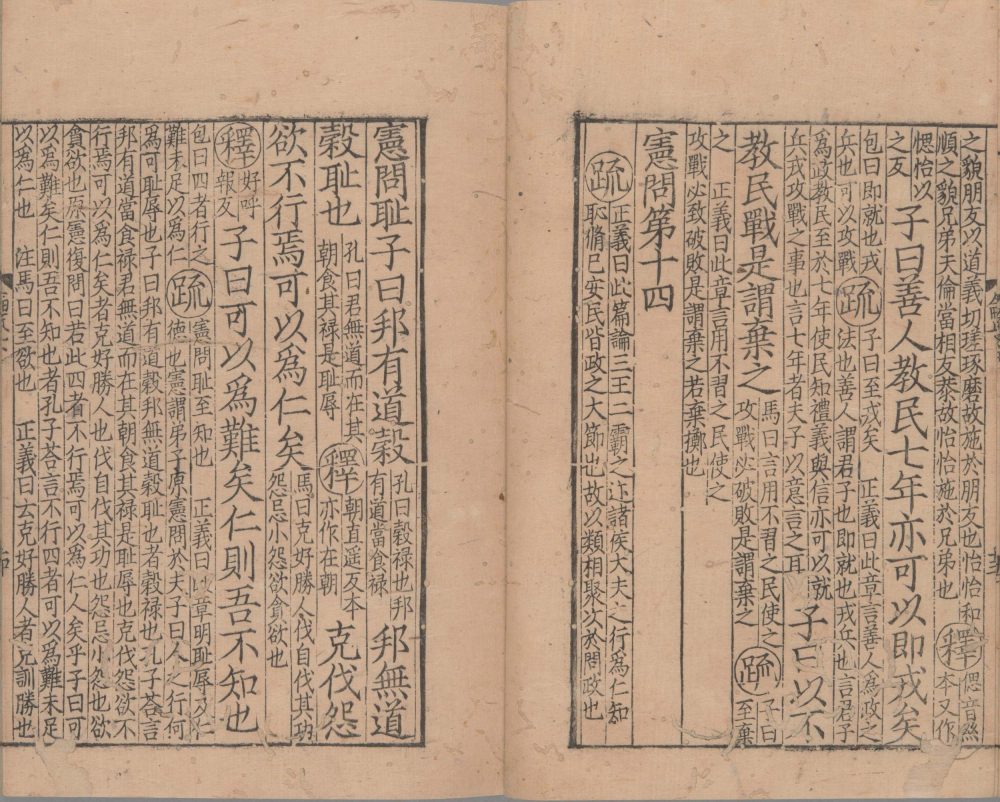 之貌朋友以道義切瑳琢磨故施於朋友也怡怡和順之貌兄弟天倫當相友恭故怡怡施於兄弟也 釋 偲音絲本又作
愢怡以之反 子曰善人教民七年亦可以即戎矣
包曰即就也戎兵也可以攻戰 疏 子曰至戎矣 正義曰此章言善人爲政之法也善人謂君子也即就也戎兵也言君子
爲政教民至於七年使民知禮義與信亦可以就兵戎攻戰之事也言七年者夫子以意言之耳 子曰以不
教民戰是謂棄之 馬曰言用不習之民使之攻戰必破敗是謂棄之 疏 子曰至棄
之 正義曰此章言用不習之民使之攻戰必致破敗是謂棄之若棄擲也
憲問第十四
疏 正義曰此篇論三王二霸之迹諸侯大夫之行爲仁知恥脩己安民皆政之大節也故以類相聚次於問政也
憲問恥子曰邦有道穀 孔曰穀祿也邦有道當食祿 邦無道
穀恥也 孔曰君無道而在其朝食其祿是恥辱 釋 朝直遥反本亦作在朝 克伐怨
欲不行焉可以爲仁矣 馬曰克好勝人伐自伐其功怨忌小怨欲貪欲也
釋 好呼報反 子曰可以爲難矣仁則吾不知也
包曰四者行之難未足以爲仁 疏 憲問恥至知也 正義曰此章明恥辱及仁德也憲謂弟子原憲問於夫子曰人之行何
爲可恥辱也子曰邦有道穀邦無道穀恥也者穀祿也孔子荅言邦有道當食祿君無道而在其朝食其祿是恥辱也克伐怨欲不
行焉可以爲仁矣者克好勝人也伐自伐其功也怨忌小怨也欲貪欲也原憲復問曰若此四者不行焉可以爲仁人矣乎子曰可
以爲難矣仁則吾不知也者孔子荅言不行四者可以爲難未足以爲仁也 注馬曰至欲也 正義曰云克好勝人者克訓勝也